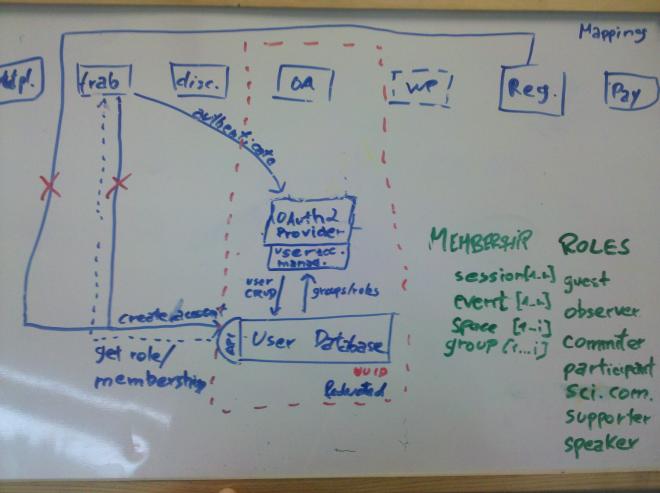 Mappings
frab
disc.
OA
WP
Reg.
Pay
authenticate
OAuth2
Provider
user acc.
manag.
user
CRUD
groups/roles
create account
API
User Database
get role/
membership
UUID
MEMBERSHIP
session [1..n]
event [1..n]
space [1-i]
group [1...i]
ROLES
guest
observer
commiter
participant
sci.com.
supporter
speaker